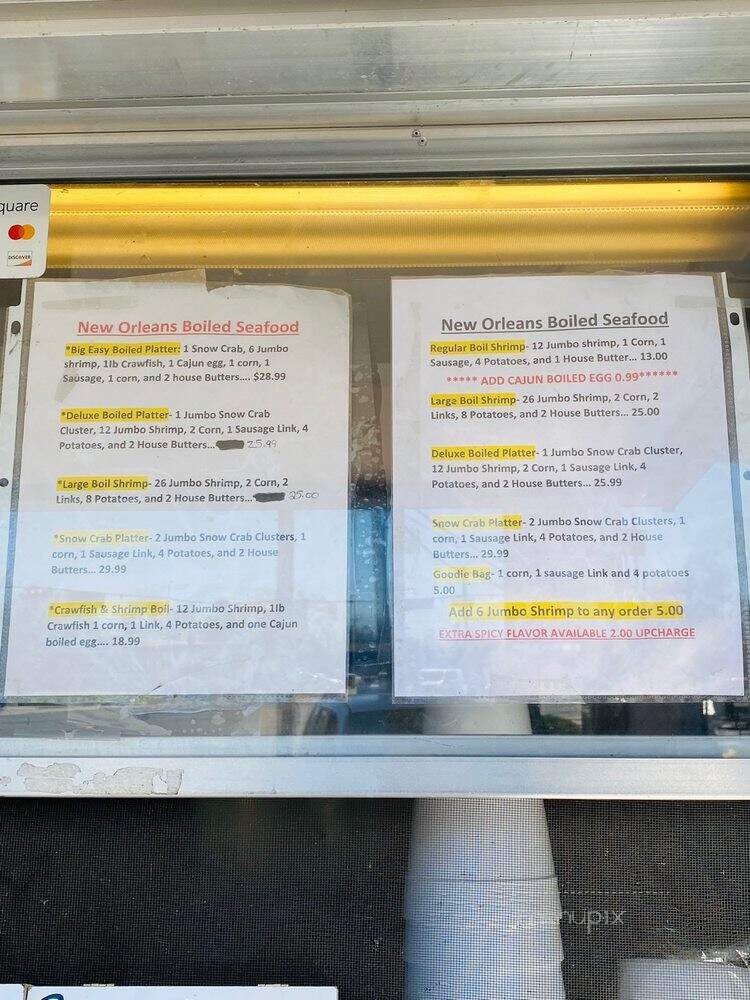 quare
DISCOVER
New Orleans Boiled Seafood
*Big Easy Boiled Platter: 1 Snow Crab, 6 Jumbo
shrimp, 1lb Crawfish, 1 Cajun egg, 1 corn, 1
Sausage, 1 corn, and 2 house Butters.... $28.99
*Deluxe Boiled Platter- 1 Jumbo Snow Crab
Cluster, 12 Jumbo Shrimp, 2 Corn, 1 Sausage Link, 4
Potatoes, and 2 House Butters... 25.99
*Large Boil Shrimp- 26 Jumbo Shrimp, 2 Corn, 2
Links, 8 Potatoes, and 2 House Butters... 25.00
*Snow Crab Platter- 2 Jumbo Snow Crab Clusters, 1
corn, 1 Sausage Link, 4 Potatoes, and 2 House
Butters... 29.99
*Crawfish & Shrimp Boil- 12 Jumbo Shrimp, 1lb
Crawfish 1 corn, 1 Link, 4 Potatoes, and one Cajun
boiled egg.... 18.99
New Orleans Boiled Seafood
Regular Boil Shrimp- 12 Jumbo shrimp, 1 Corn, 1
Sausage, 4 Potatoes, and 1 House Butter... 13.00
***** ADD CAJUN BOILED EGG 0.99******
Large Boil Shrimp- 26 Jumbo Shrimp, 2 Corn, 2
Links, 8 Potatoes, and 2 House Butters... 25.00
Deluxe Boiled Platter- 1 Jumbo Snow Crab Cluster,
12 Jumbo Shrimp, 2 Corn, 1 Sausage Link, 4
Potatoes, and 2 House Butters... 25.99
Snow Crab Platter- 2 Jumbo Snow Crab Clusters, 1
corn, 1 Sausage Link, 4 Potatoes, and 2 House
Butters... 29.99
Goodie Bag- 1 corn, 1 sausage Link and 4 potatoes
5.00
Add 6 Jumbo Shrimp to any order 5.00
EXTRA SPICY FLAVOR AVAILABLE 2.00 UPCHARGE